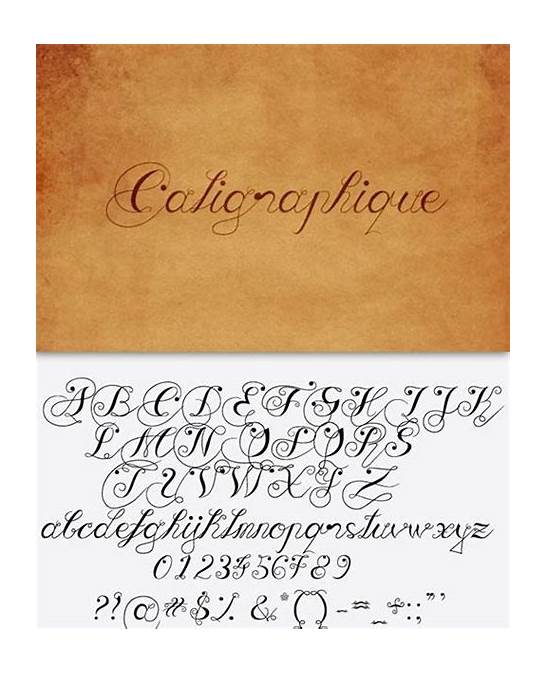 Caligraphique
A B C D E F G H I J K
L M N O P Q R S
T U V W X Y Z
abcdefghijklmnopqrstuvwxyz
0 1 2 3 4 5 6 7 8 9
?! @ # $ % & * () - = _ + : ; " '